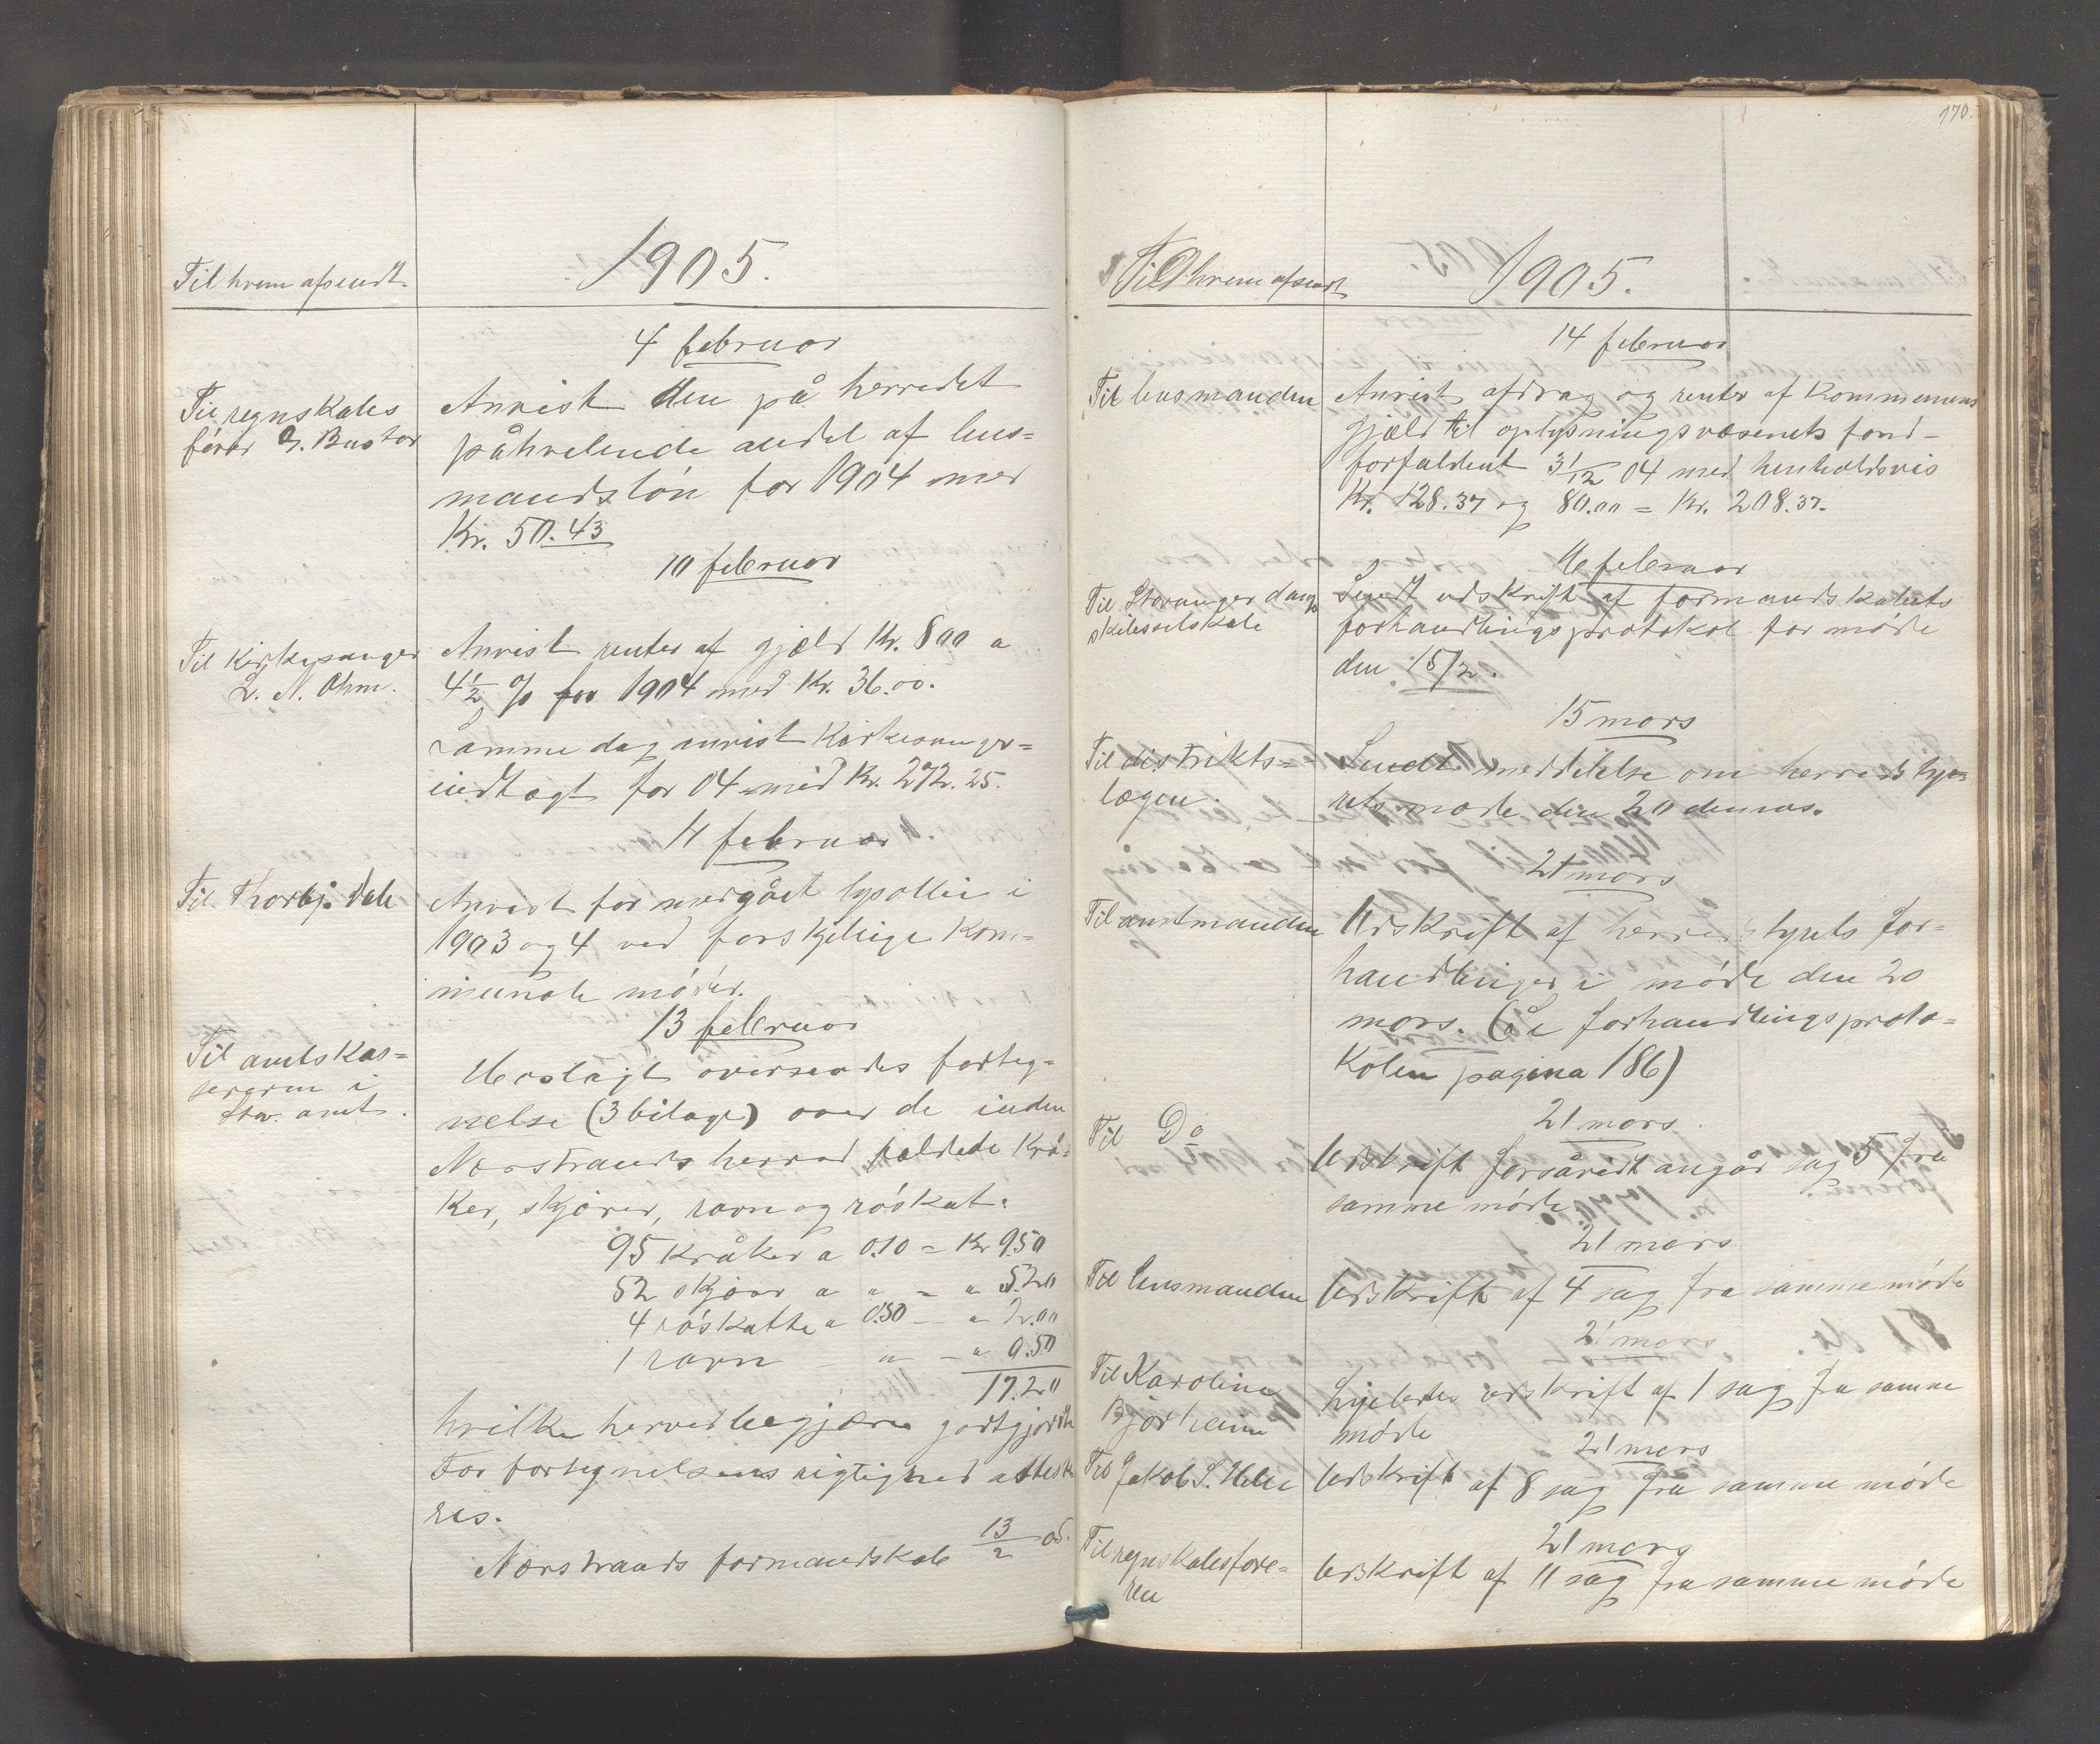 Til hvem afsendt.
1905.
4 februar
Til regnskabs
fører G. Bustor
Anvist den på herredet
påhvilende andel af lens=
mandsløn for 1904 med
Kr. 50.43
10 februar
Til Kirkesanger
L. N. Ohm.
Anvist renter af gjæld Kr. 800 a
4 1/2 % for 1904 med Kr. 36.00.
Samme dag anvist Kirkesanger=
indtægt for 04 med Kr. 272.25.
11 februar
Til Thorbj. Dale
Anvist for medgået lysolie i
1903 og 4 ved forskjelige Kom=
munale møder.
13 februar
Til amtskas=
sereren i
Stav. amt.
Vedlagt oversendes forteg=
nelse (3 bilage) over de inden
Nærstrands herred fældede Krå=
ker, skjærer, ravn og røskat:
95 Kråker a 0.10 = Kr 9.50
52 skjær a " = " 5.20
4 røskatte a 0.50 — " 2.00
1 ravn — " — " 0.50
17.20
hvilke herved begjæres godtgjordte
For fortegnelsens rigtighed atteste
res.
Nærstrands formandskab 13/2 05.
170.
Til hvem afsendt
1905.
14 februar
Til lensmanden
Anvist afdrag og renter af Kommunens
gjæld til oplysningsvæsenets fond—
forfaldent 31/12 04 med henholdsvis
Kr. 128.37 og 80.00 = Kr. 208.37.
16 februar
Til Stavanger damp
skibsselskab
Sendt udskrift af formandskabets
forhandlingsprotokol for møde
den 15/2.
15 mars
Til distrikts=
lægen.
Sendt meddelelse om herredssty=
rets møde den 20 dennes.
21 mars
Til amtmanden
Udskrift af herredsstyrets for=
handlinger i møde den 20
mars. (Se forhandlingsproto=
Kolen pagina 186)
21 mars
Til Do
Udskrift forsåvidt angår sag 5 fra
samme møde
21 mars
Til lensmanden
Udskrift af 4 sag fra samme møde
21 mars
Til Karoline
Bjørheim
Ligeledes udskrift af 1 sag fra samme
møde
21 mars
Til Jakob S.
Udskrift af 8 sag fra samme møde
21 mars
Til regnskabsføre=
ren
Udskrift af 11 sag fra samme møde